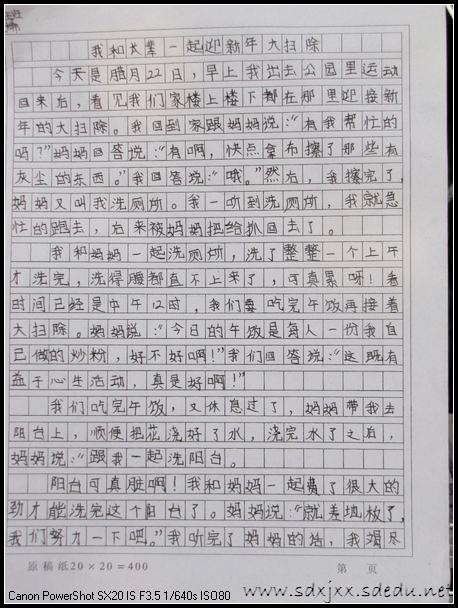 我和大辈一起迎新年大扫除
今天是腊月22日，早上我出去公园里运动
回来后，看见我们家楼上楼下都在那里迎接新
年的大扫除。我回到家跟妈妈说：“有我帮忙的
吗？”妈妈回答说：“有啊，快点拿布擦了那些有
灰尘的东西。”我回答说：“哦。”然后，我擦完了，
妈妈又叫我洗厕所。我一听到洗厕所，我就急
忙的跑去，后来被妈妈把给抓回去了。
我和妈妈一起洗厕所，洗了整整一个上午
才洗完，洗得腰都直不上来了，可真累呀！看
时间已经是中午12时，我们要吃完午饭再接着
大扫除。妈妈说：“今日的午饭是每人一份我自
己做的炒粉，好不好啊！”我们回答说：“这既有
益于心生活动，真是好啊！”
我们吃完午饭，又休息过了，妈妈带我去
阳台上，顺便把花浇好了水，浇完水了之后，
妈妈说：“跟我一起洗阳台。
阳台可真脏啊！我和妈妈一起费了很大的
劲才能洗完这个阳台了。妈妈说：“就差地板了，
我们努力一下吧。”我听完了妈妈的话，我竭尽
原稿纸20×20=400 第 页
www.sdxjxx.sdedu.net
Canon PowerShot SX20 IS F3.5 1/640s ISO80